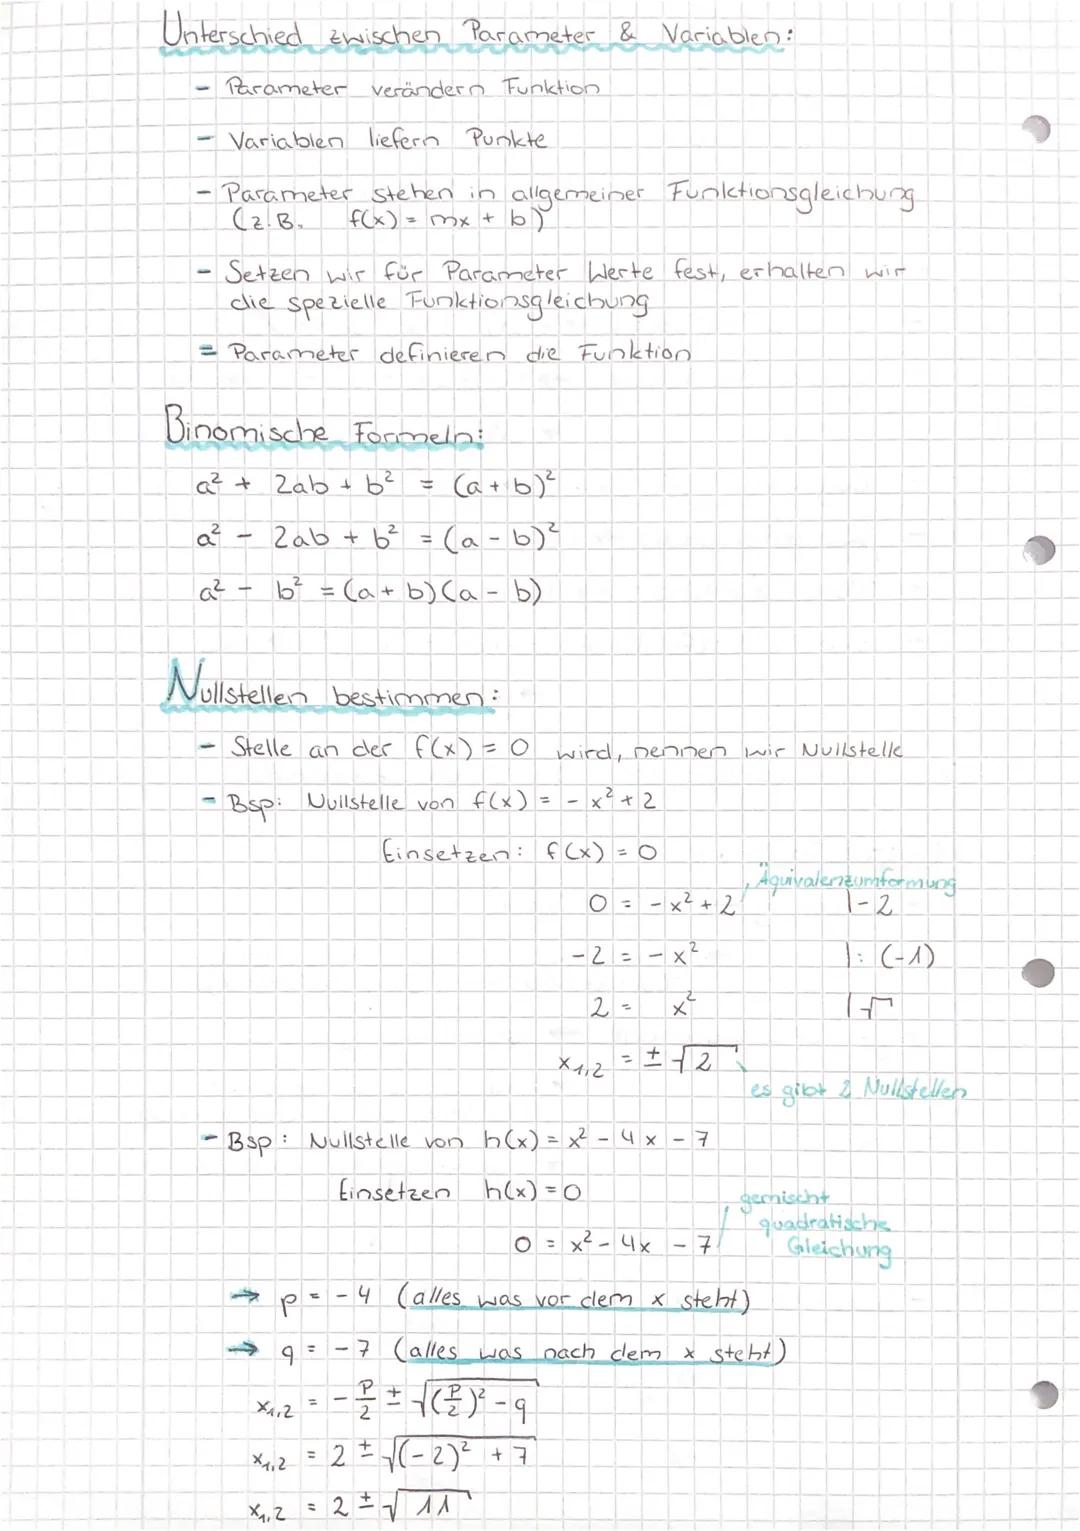 Unterschied zwischen Parameter & Variablen:
- Parameter verändern Funktion
- Variablen liefern Punkte
- Parameter stehen in allgemeiner Funktionsgleichung
(z.B. f(x) = mx + b)
- Setzen wir für Parameter Werte fest, erhalten wir
die spezielle Funktionsgleichung
= Parameter definieren die Funktion
Binomische Formeln:
a² + 2ab + b² = (a + b)²
a² - 2ab + b² = (a - b)²
a² - b² = (a + b)(a - b)
Nullstellen bestimmen:
- Stelle an der f(x) = 0 wird, nennen wir Nullstelle
- Bsp: Nullstelle von f(x) = - x² + 2
Einsetzen: f(x) = 0
Äquivalenzumformung
0 = - x² + 2 |- 2
-2 = - x² |: (-1)
2 = x² |√
x₁,₂ = ± √2
es gibt 2 Nullstellen
- Bsp: Nullstelle von h(x) = x² - 4x - 7
Einsetzen h(x) = 0
gemischt
quadratische
0 = x² - 4x - 7 Gleichung
→ p = - 4 (alles was vor dem x steht)
→ q = - 7 (alles was nach dem x steht)
x₁,₂ = - p/2 ± √((p/2)² - q)
x₁,₂ = 2 ± √((-2)² + 7)
x₁,₂ = 2 ± √11